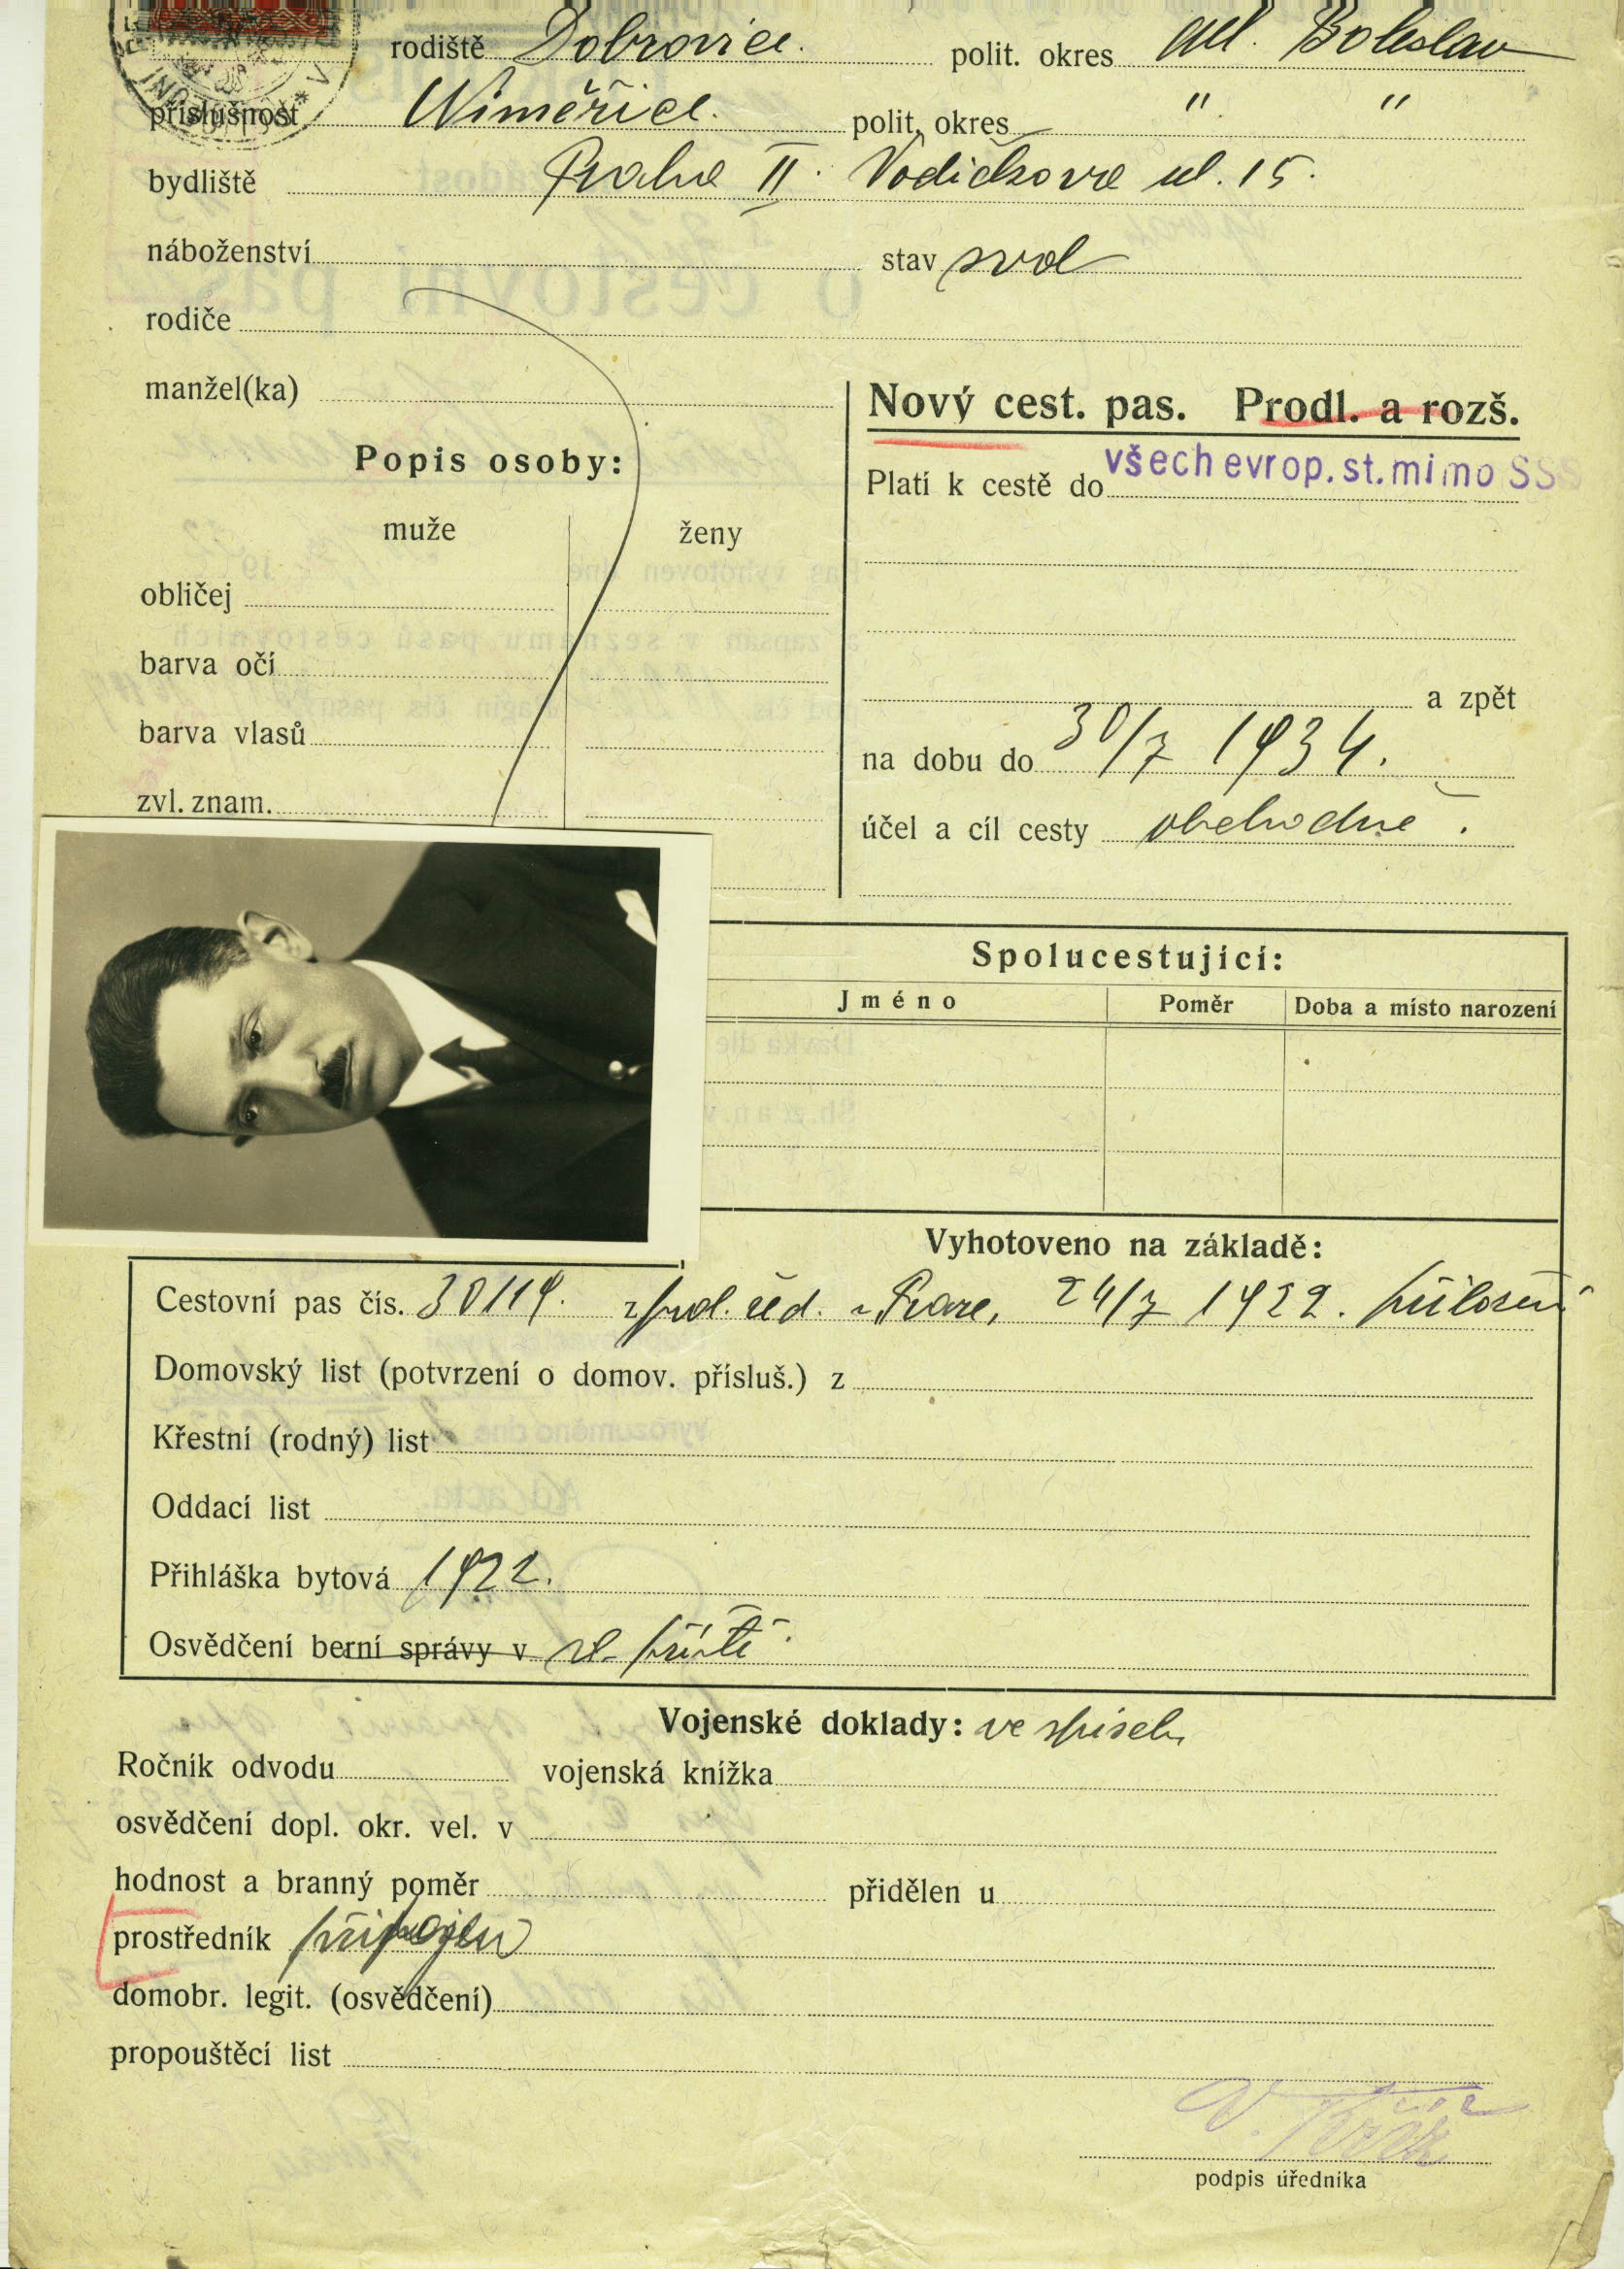 rodiště Dobrovice. polit. okres Ml. Boleslav
příslušnost Niměřice. polit. okres " "
bydliště Praha II. Vodičkova ul. 15.
náboženství stav svob
rodiče
manžel(ka)
Popis osoby:
muže ženy
obličej
barva očí
barva vlasů
zvl. znam.
Nový cest. pas. Prodl. a rozš.
Platí k cestě do všech evrop. st. mimo SS
a zpět
na dobu do 30/7 1934.
účel a cíl cesty obchodně.
Spolucestující:
Jméno Poměr Doba a místo narození
Vyhotoveno na základě:
Cestovní pas čís. 30119. z pol. řed. v Praze, 24/7 1922. přiložen
Domovský list (potvrzení o domov. přísluš.) z
Křestní (rodný) list
Oddací list
Přihláška bytová 1922.
Osvědčení berní správy v
Vojenské doklady: ve spisech
Ročník odvodu vojenská knížka
osvědčení dopl. okr. vel. v
hodnost a branný poměr přidělen u
prostředník připojen
domobr. legit. (osvědčení)
propouštěcí list
podpis úředníka